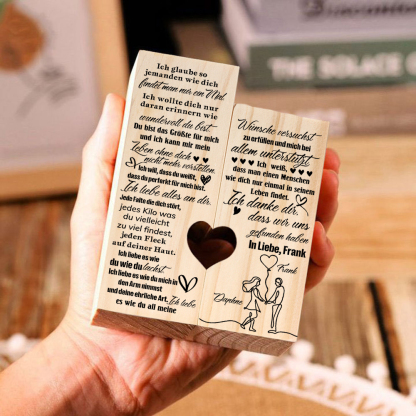 Ich glaube so
jemanden wie dich
findet man nur ein Mal.
Ich wollte dich nur
daran erinnern wie
wundervoll du bist.
Du bist das Größte für mich
und ich kann mir mein
Leben ohne dich
nicht mehr vorstellen.
Ich will, dass du weißt,
dass du perfekt für mich bist.
Ich liebe alles an dir.
Jede Falte die dich stört,
jedes Kilo was
du vielleicht
zu viel findest,
jeden Fleck
auf deiner Haut.
Ich liebe es wie
du wie du lachst
Ich liebe es wie du mich in
den Arm nimmst
und deine ehrliche Art, Ich liebe
es wie du all meine
Wünsche versuchst
zu erfüllen und mich bei
allem unterstützt
Ich weiß,
dass man einen Menschen
wie dich nur einmal in seinem
Leben findet.
Ich danke dir,
dass wir uns
gefunden haben
In Liebe, Frank
Frank
Daphne
THE SOLACE OF